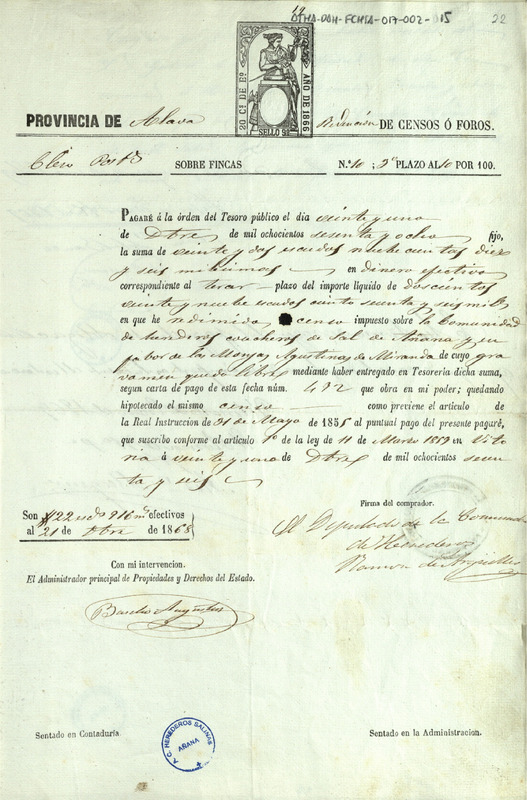 OTHA-DAH-FCHSA-017-002-015
22
20 Cs DE Eo
AÑO DE 1866
SELLO 9º
PROVINCIA DE Alava Redencion DE CENSOS Ó FOROS.
Clero SOBRE FINCAS N.º 10 ; 3er PLAZO AL 10 POR 100.
PAGARÉ á la órden del Tesoro público el dia veinte y uno
de Dbre de mil ochocientos sesenta y ocho fijo,
la suma de veinte y dos escudos nuebecientos diez
y seis milesimas en dinero efectivo
correspondiente al tercer plazo del importe líquido de doscientos
veinte y nuebe escudos ciento sesenta y seis mils
en que he redimido censo impuesto sobre la Comunidad
de herederos cavalleros de Sal de Añana y en
fabor de las Monjas Agustinas de Miranda de cuyo gra
vamen queda libre mediante haber entregado en Tesorería dicha suma,
segun carta de pago de esta fecha núm. 492 que obra en mi poder; quedando
hipotecado el mismo censo como previene el artículo de
la Real Instruccion de 31 de Mayo de 1855 al puntual pago del presente pagaré,
que suscribo conforme al artículo 1º de la ley de 11 de Marzo 1859 en Vito
ria á veinte y uno de Dbre de mil ochocientos sesen
ta y seis
Son 22 escds 916 ms efectivos
al 21 de Dbre de 1868
Firma del comprador.
El Diputado de la Comunidad
de Herederos
Ramon de
Con mi intervencion.
El Administrador principal de Propiedades y Derechos del Estado.
Sentado en Contaduría.
A.C. HEREDEROS SALINAS
AÑANA
Sentado en la Administracion.